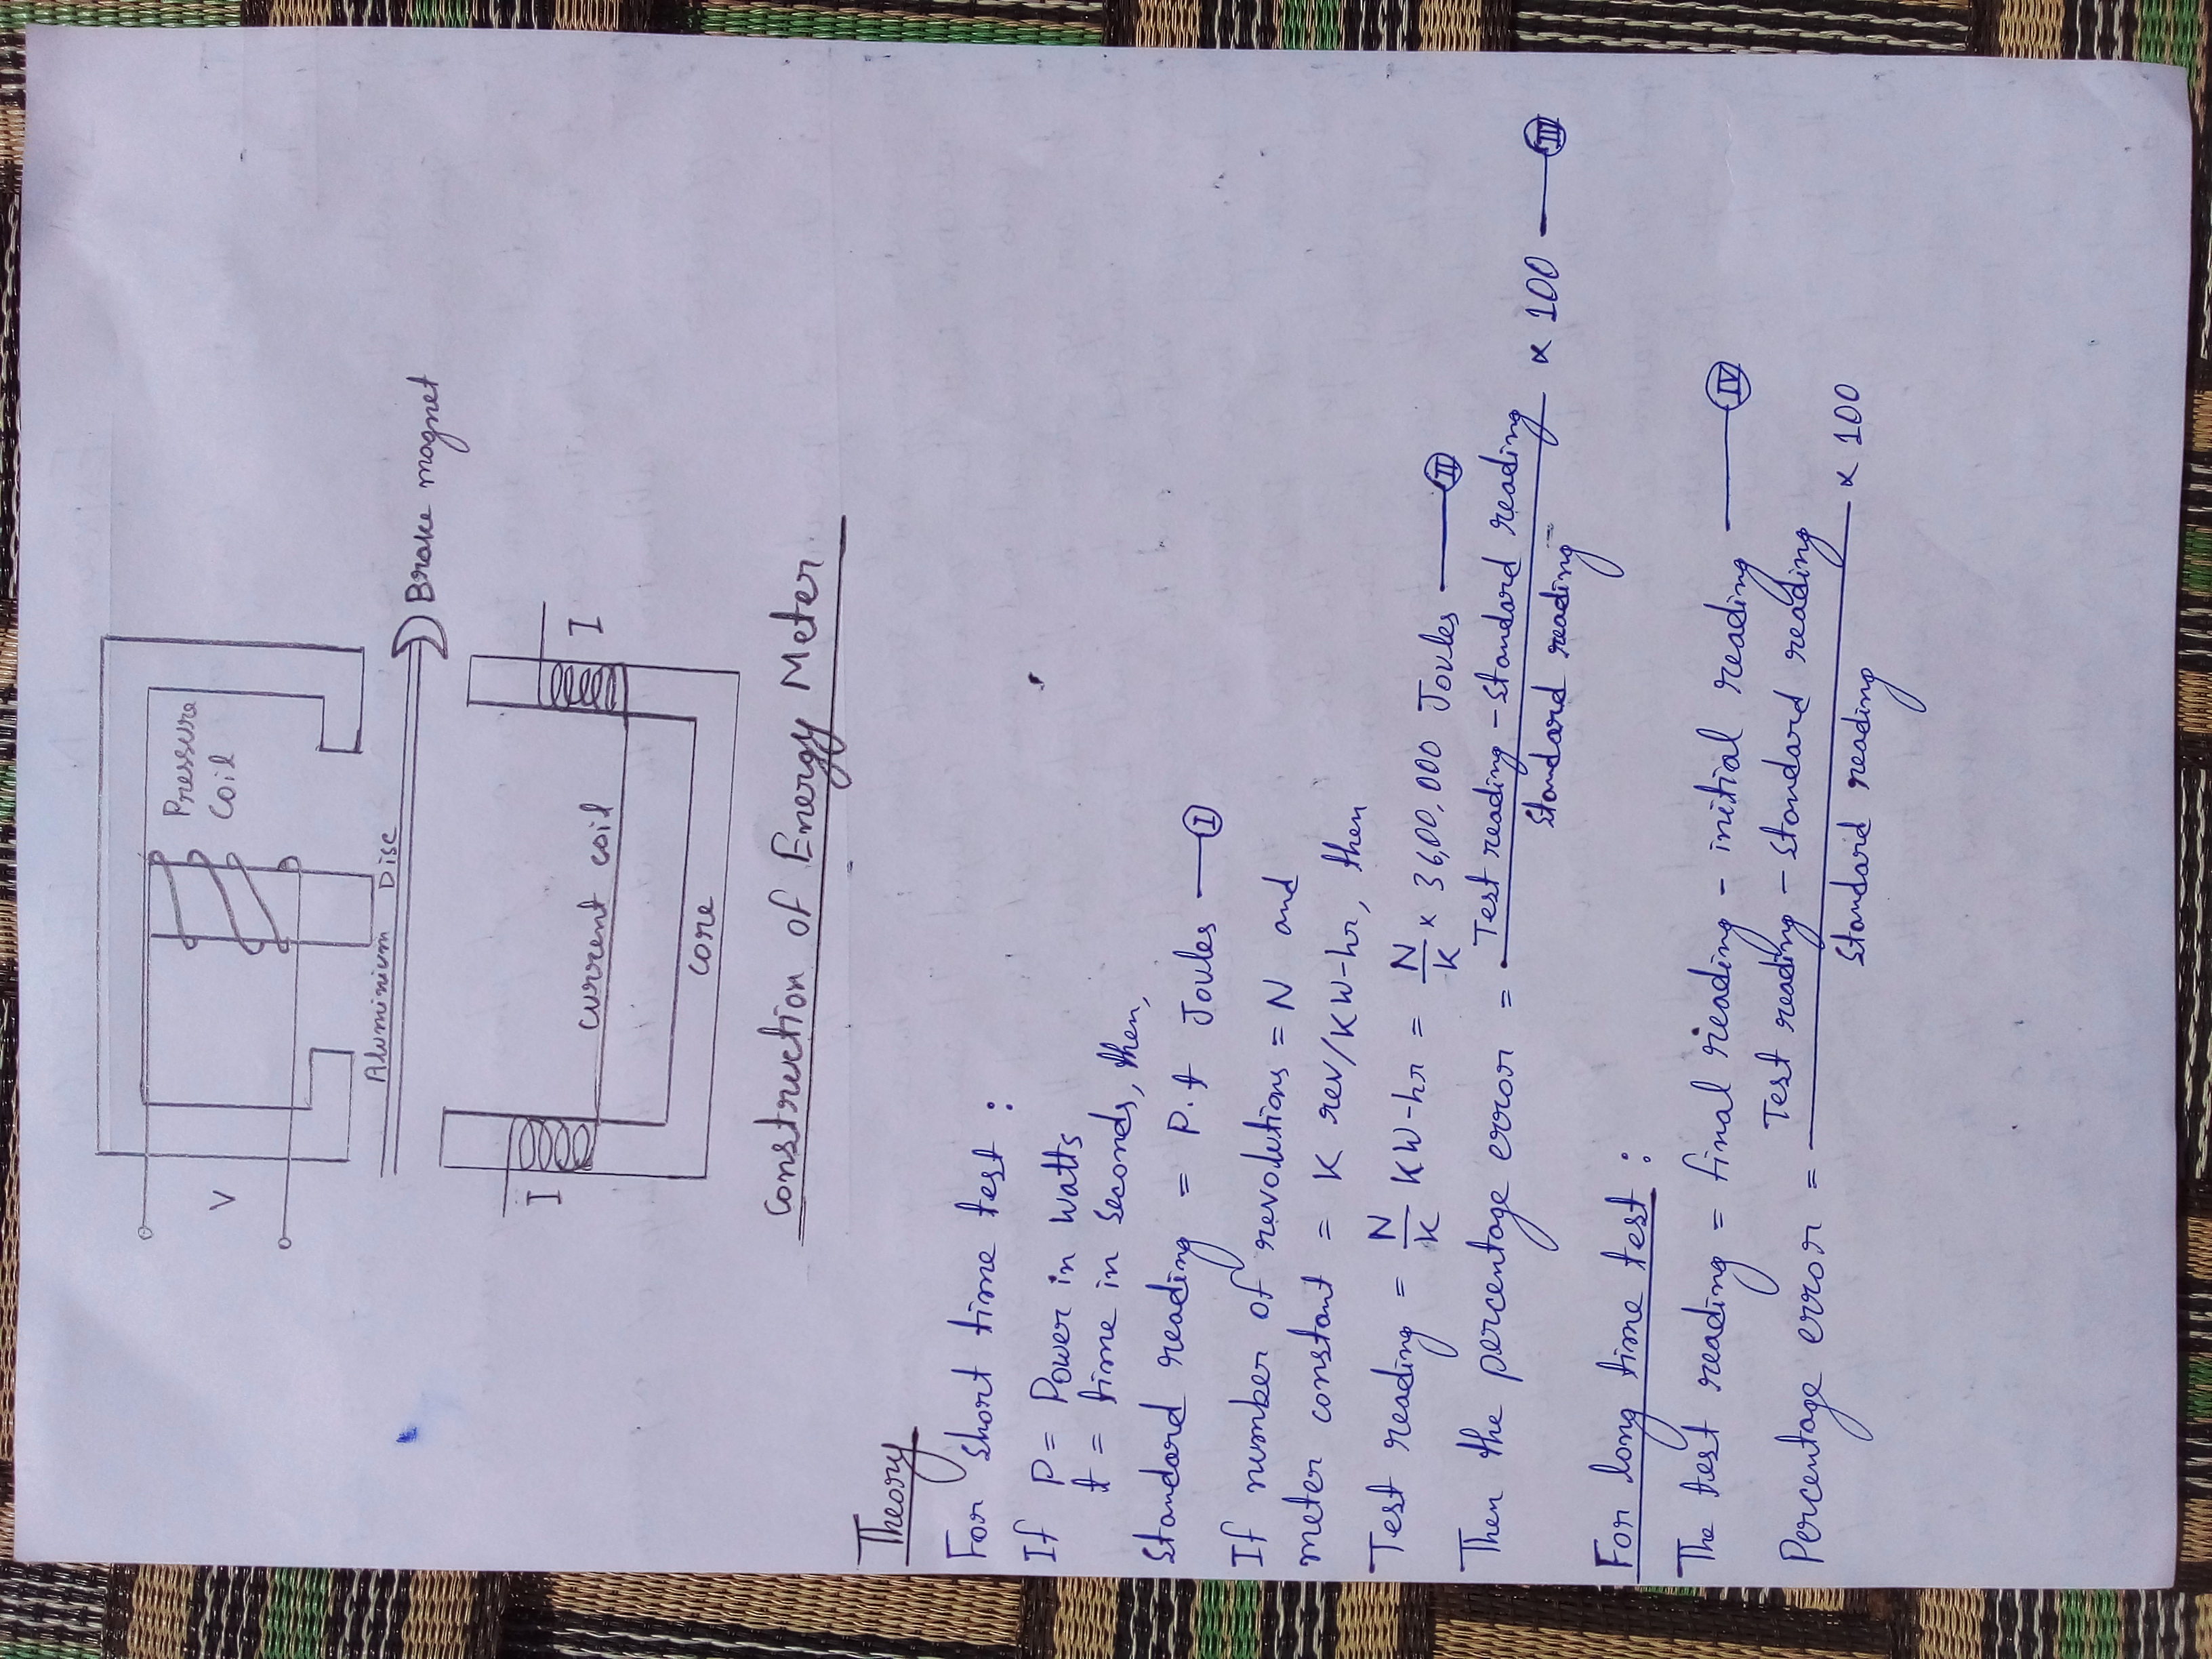 V
Pressure
Coil
Aluminium Disc
Brake magnet
I
I
current coil
core
Construction of Energy Meter
Theory
For short time test :
If P = Power in watts
t = time in seconds, then,
Standard reading = P.t Joules — I
If number of revolutions = N and
meter constant = K rev/KW-hr, then
Test reading = N/K KW-hr = N/K × 36,00,000 Joules — II
Then the percentage error = Test reading - Standard reading / Standard reading × 100 — III
For long time test :
The test reading = final reading - initial reading — IV
Percentage error = Test reading - Standard reading / Standard reading × 100